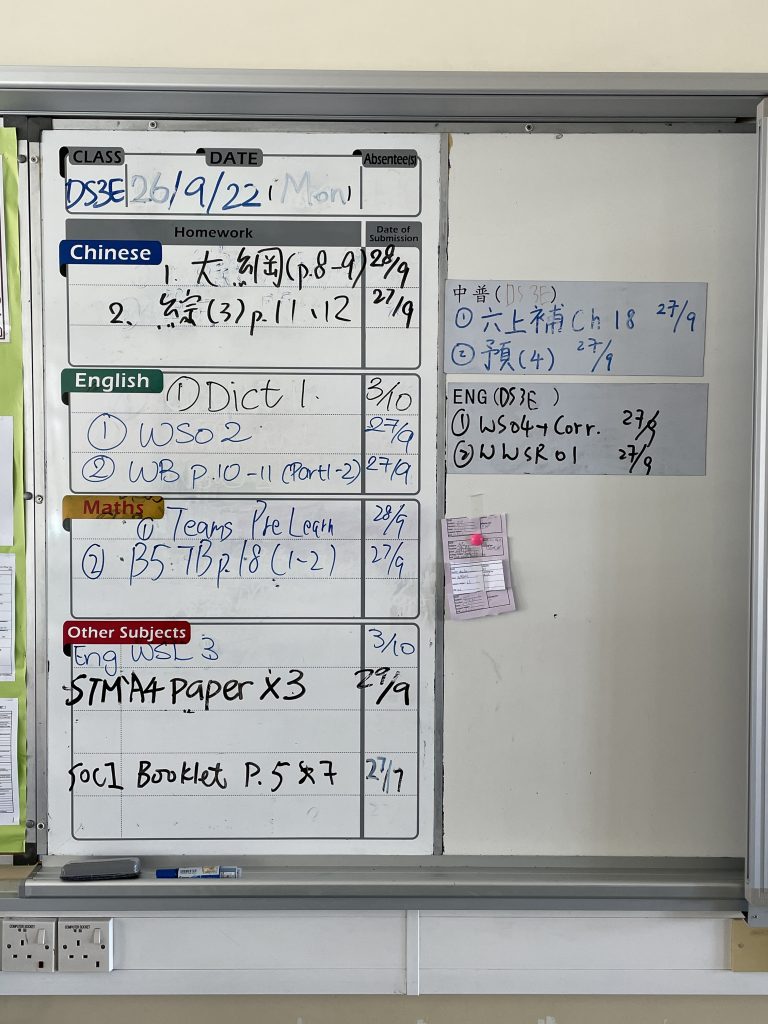 CLASS DATE Absentee(s)
DS3E 26/9/22 (Mon)
Homework Date of Submission
Chinese
1. 大綱(p.8-9) 28/9
2. 綜(3)p.11、12 27/9
English
① Dict 1. 3/10
① WS02 27/9
② WB p.10-11 (Part1-2) 27/9
Maths
① Teams Pre Learn 28/9
② B5 TB p.18 (1-2) 27/9
Other Subjects
Eng WSL 3 3/10
STM A4 paper x3 29/9
SOCI Booklet P. 5 & 7 27/9
中普(DS3E)
① 六上補 Ch 18 27/9
② 預(4) 27/9
ENG (DS3E )
① WS04 + Corr. 27/9
② WWSR01 27/9
COMPUTER SOCKET
COMPUTER SOCKET